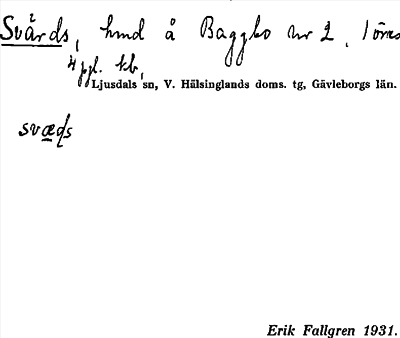 Svärds, hmd å Baggbo nr 2, 1 öres
4 pgl. kb,
Ljusdals sn, V. Hälsinglands doms. tg, Gävleborgs län.
svæds
Erik Fallgren 1931.